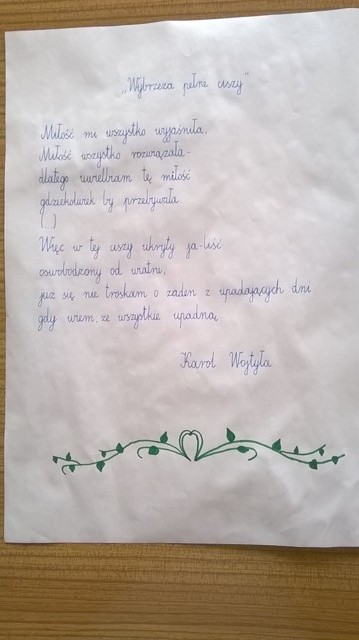 „Wybrzeża pełne ciszy"
Miłość mi wszystko wyjaśniła,
Miłość wszystko rozwiązała -
dlatego uwielbiam tę miłość
gdziekolwiek by przebywała
(...)
Więc w tej ciszy ukryty ja-liść
oswobodzony od wiatru,
już się nie troskam o żaden z upadających dni
gdy wiem, że wszystkie upadną.
Karol Wojtyła